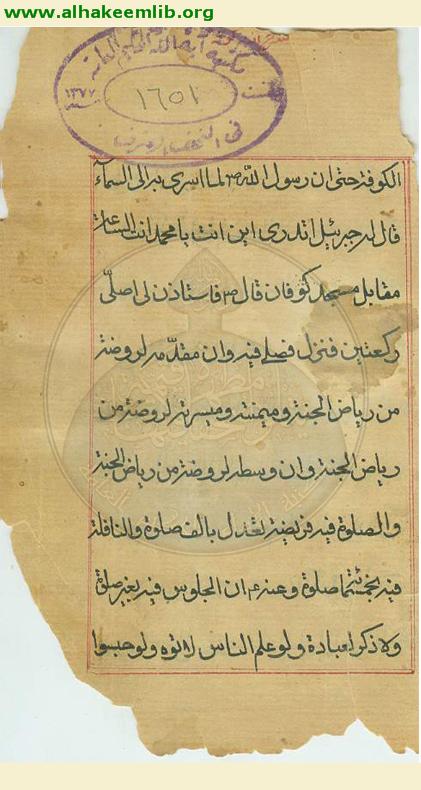 www.alhakeemlib.org
مكتبة آية الله الحكيم العامة
١٦٥١
١٣٧٧
في النجف الاشرف
الكوفة حتى ان رسول الله ص لما اسرى به الى السماء
قال له جبرئيل اتدرى اين انت يا محمد انت الساعة
مقابل مسجد كوفان قال ص فاستاذن لى اصلّى
ركعتين فنزل فصلى فيه وان مقدّمه لروضة
من رياض الجنة وميمنته وميسرته لروضة من
رياض الجنة وان وسطه لروضة من رياض الجنة
والصلوة فيه فريضة تعدل بالف صلوة والنافلة
فيه بخمسمئة صلوة وعنه ع ان الجلوس فيه بغير صلوة
ولا ذكر لعبادة ولو علم الناس لاتوه ولو حبسوا